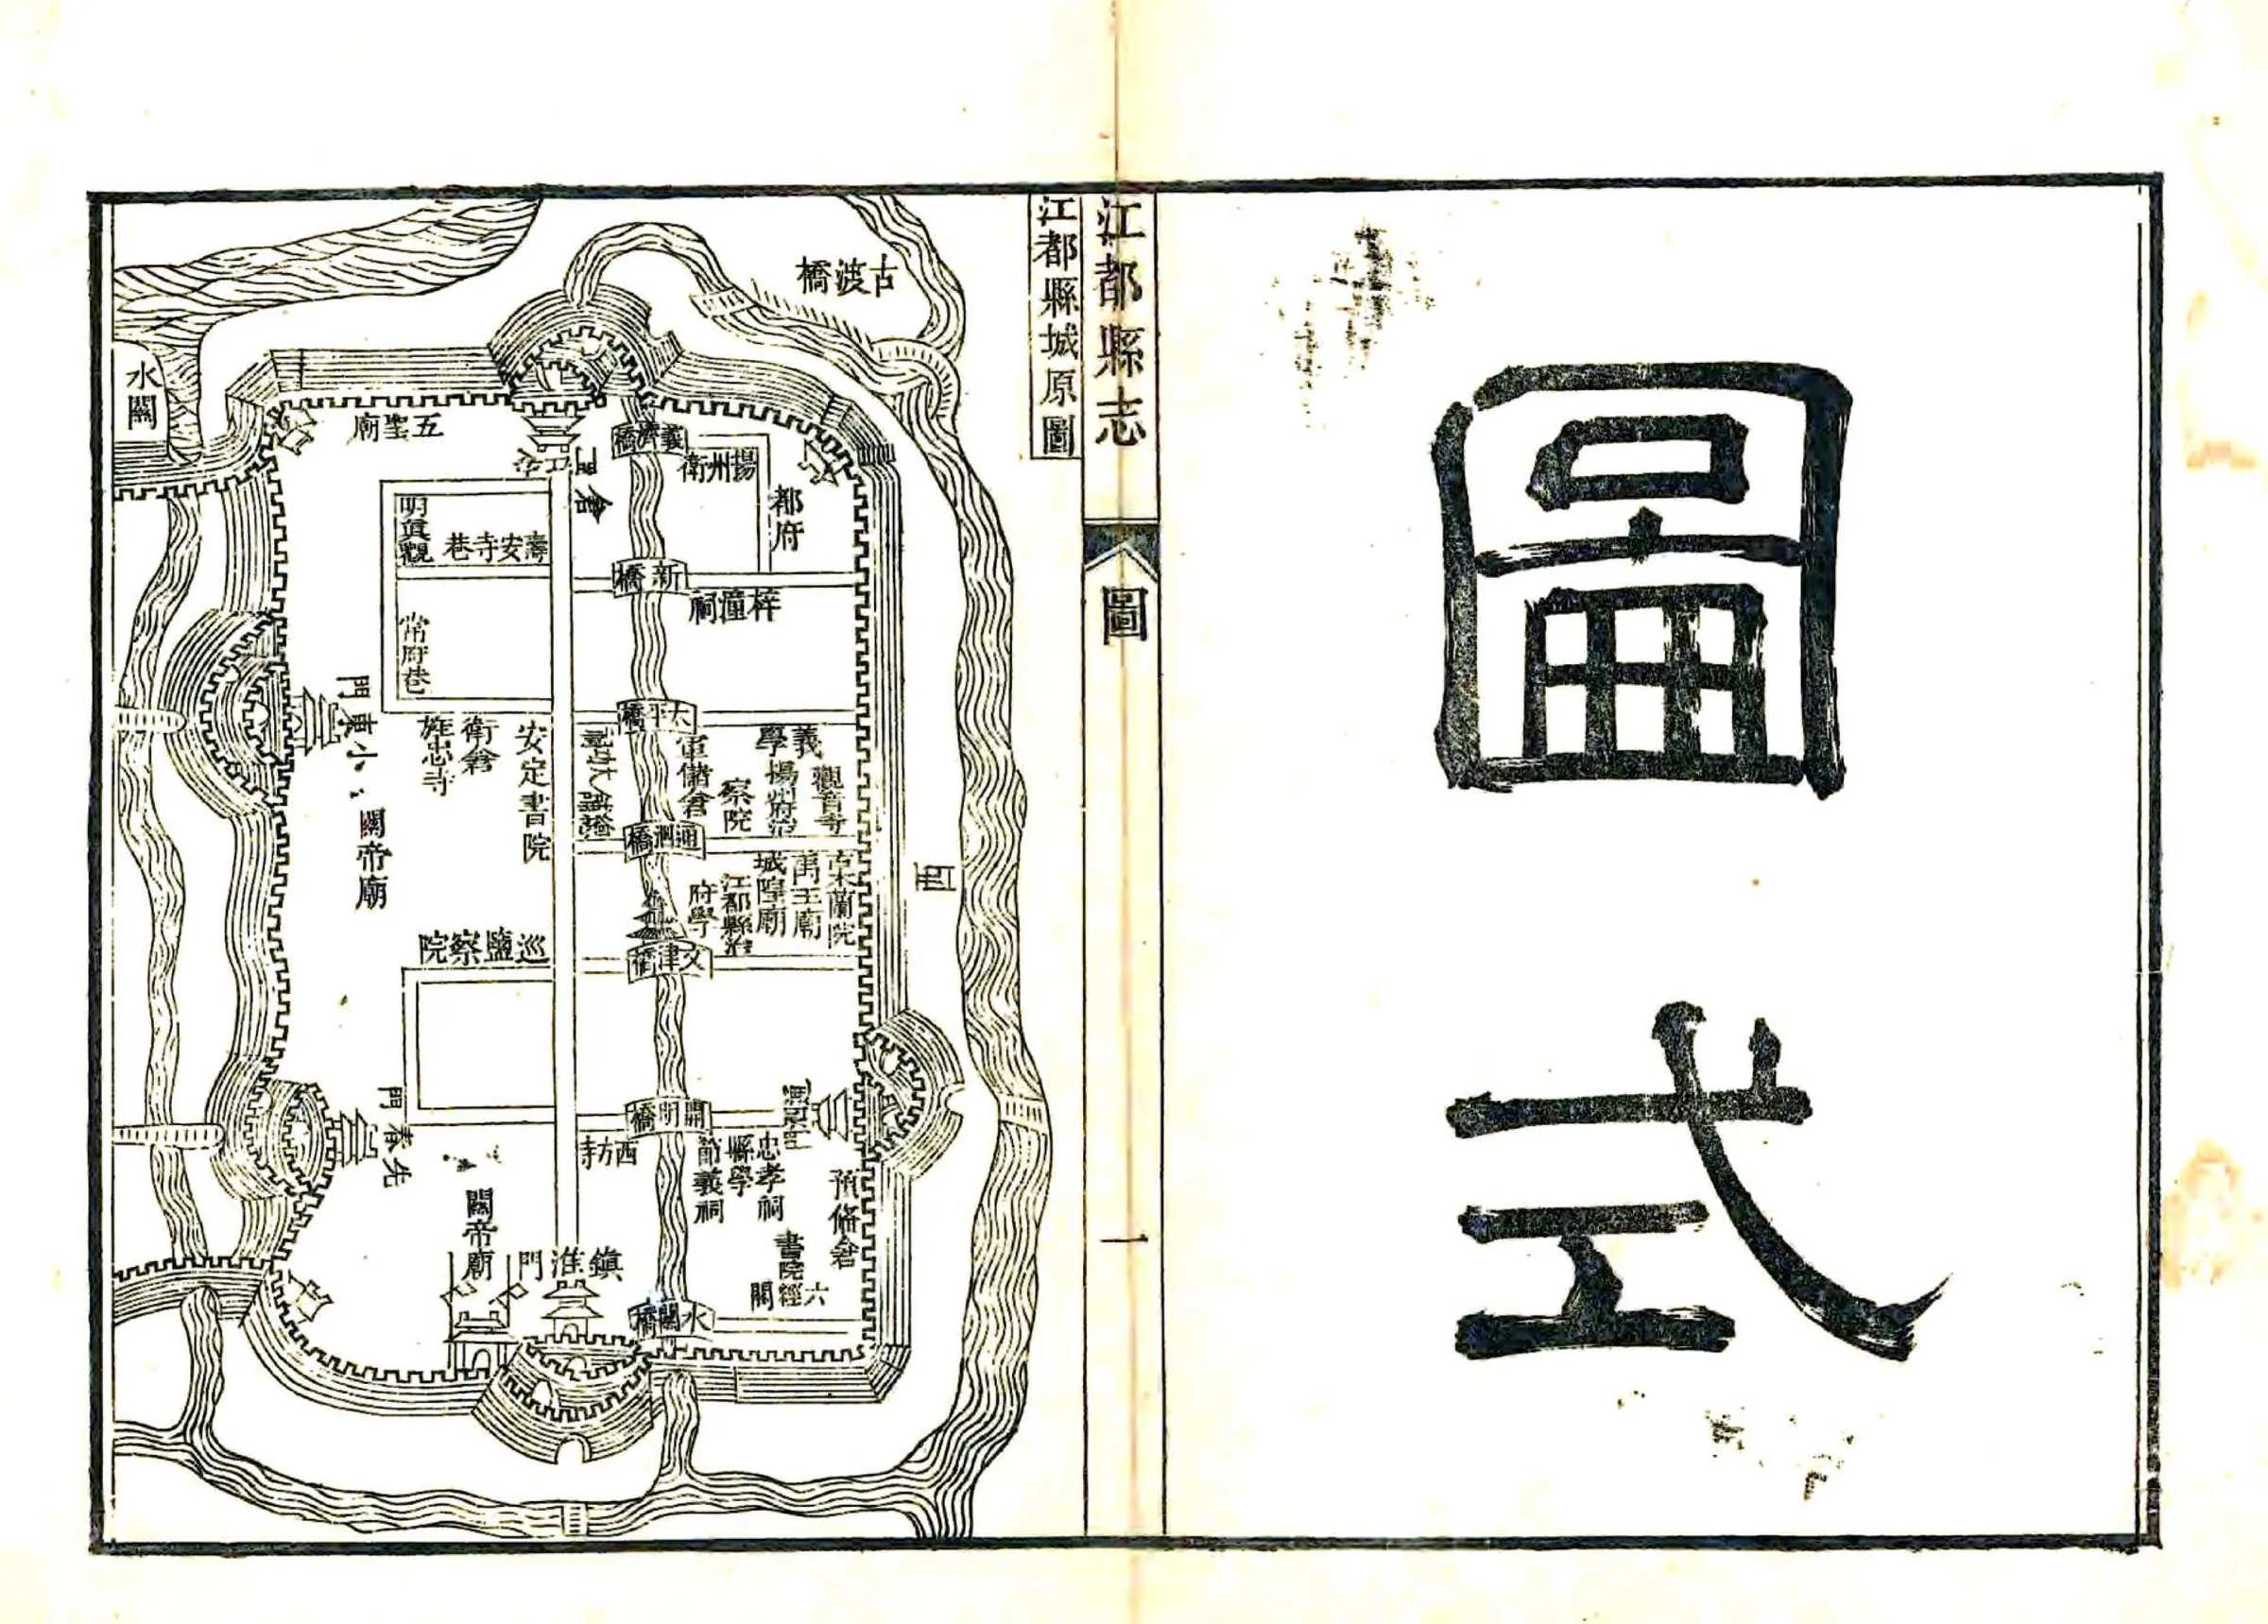 圖式
江都縣志
圖
一
江都縣城原圖
古渡橋
水關
五聖廟
義濟橋
揚州衛
都府
倉
明真觀
壽安寺巷
新橋
梓潼祠
常府巷
小東門
旌忠寺
衛倉
安定書院
太平橋
軍儲倉
察院
義學
揚州府治
觀音寺
關帝廟
通泗橋
府學
江都縣治
城隍廟
禹王廟
蘭院
西
巡鹽察院
文津橋
開明橋
先春門
西方寺
節義祠
縣學
忠孝祠
預備倉
書院
六經閣
關帝廟
鎮淮門
水關橋